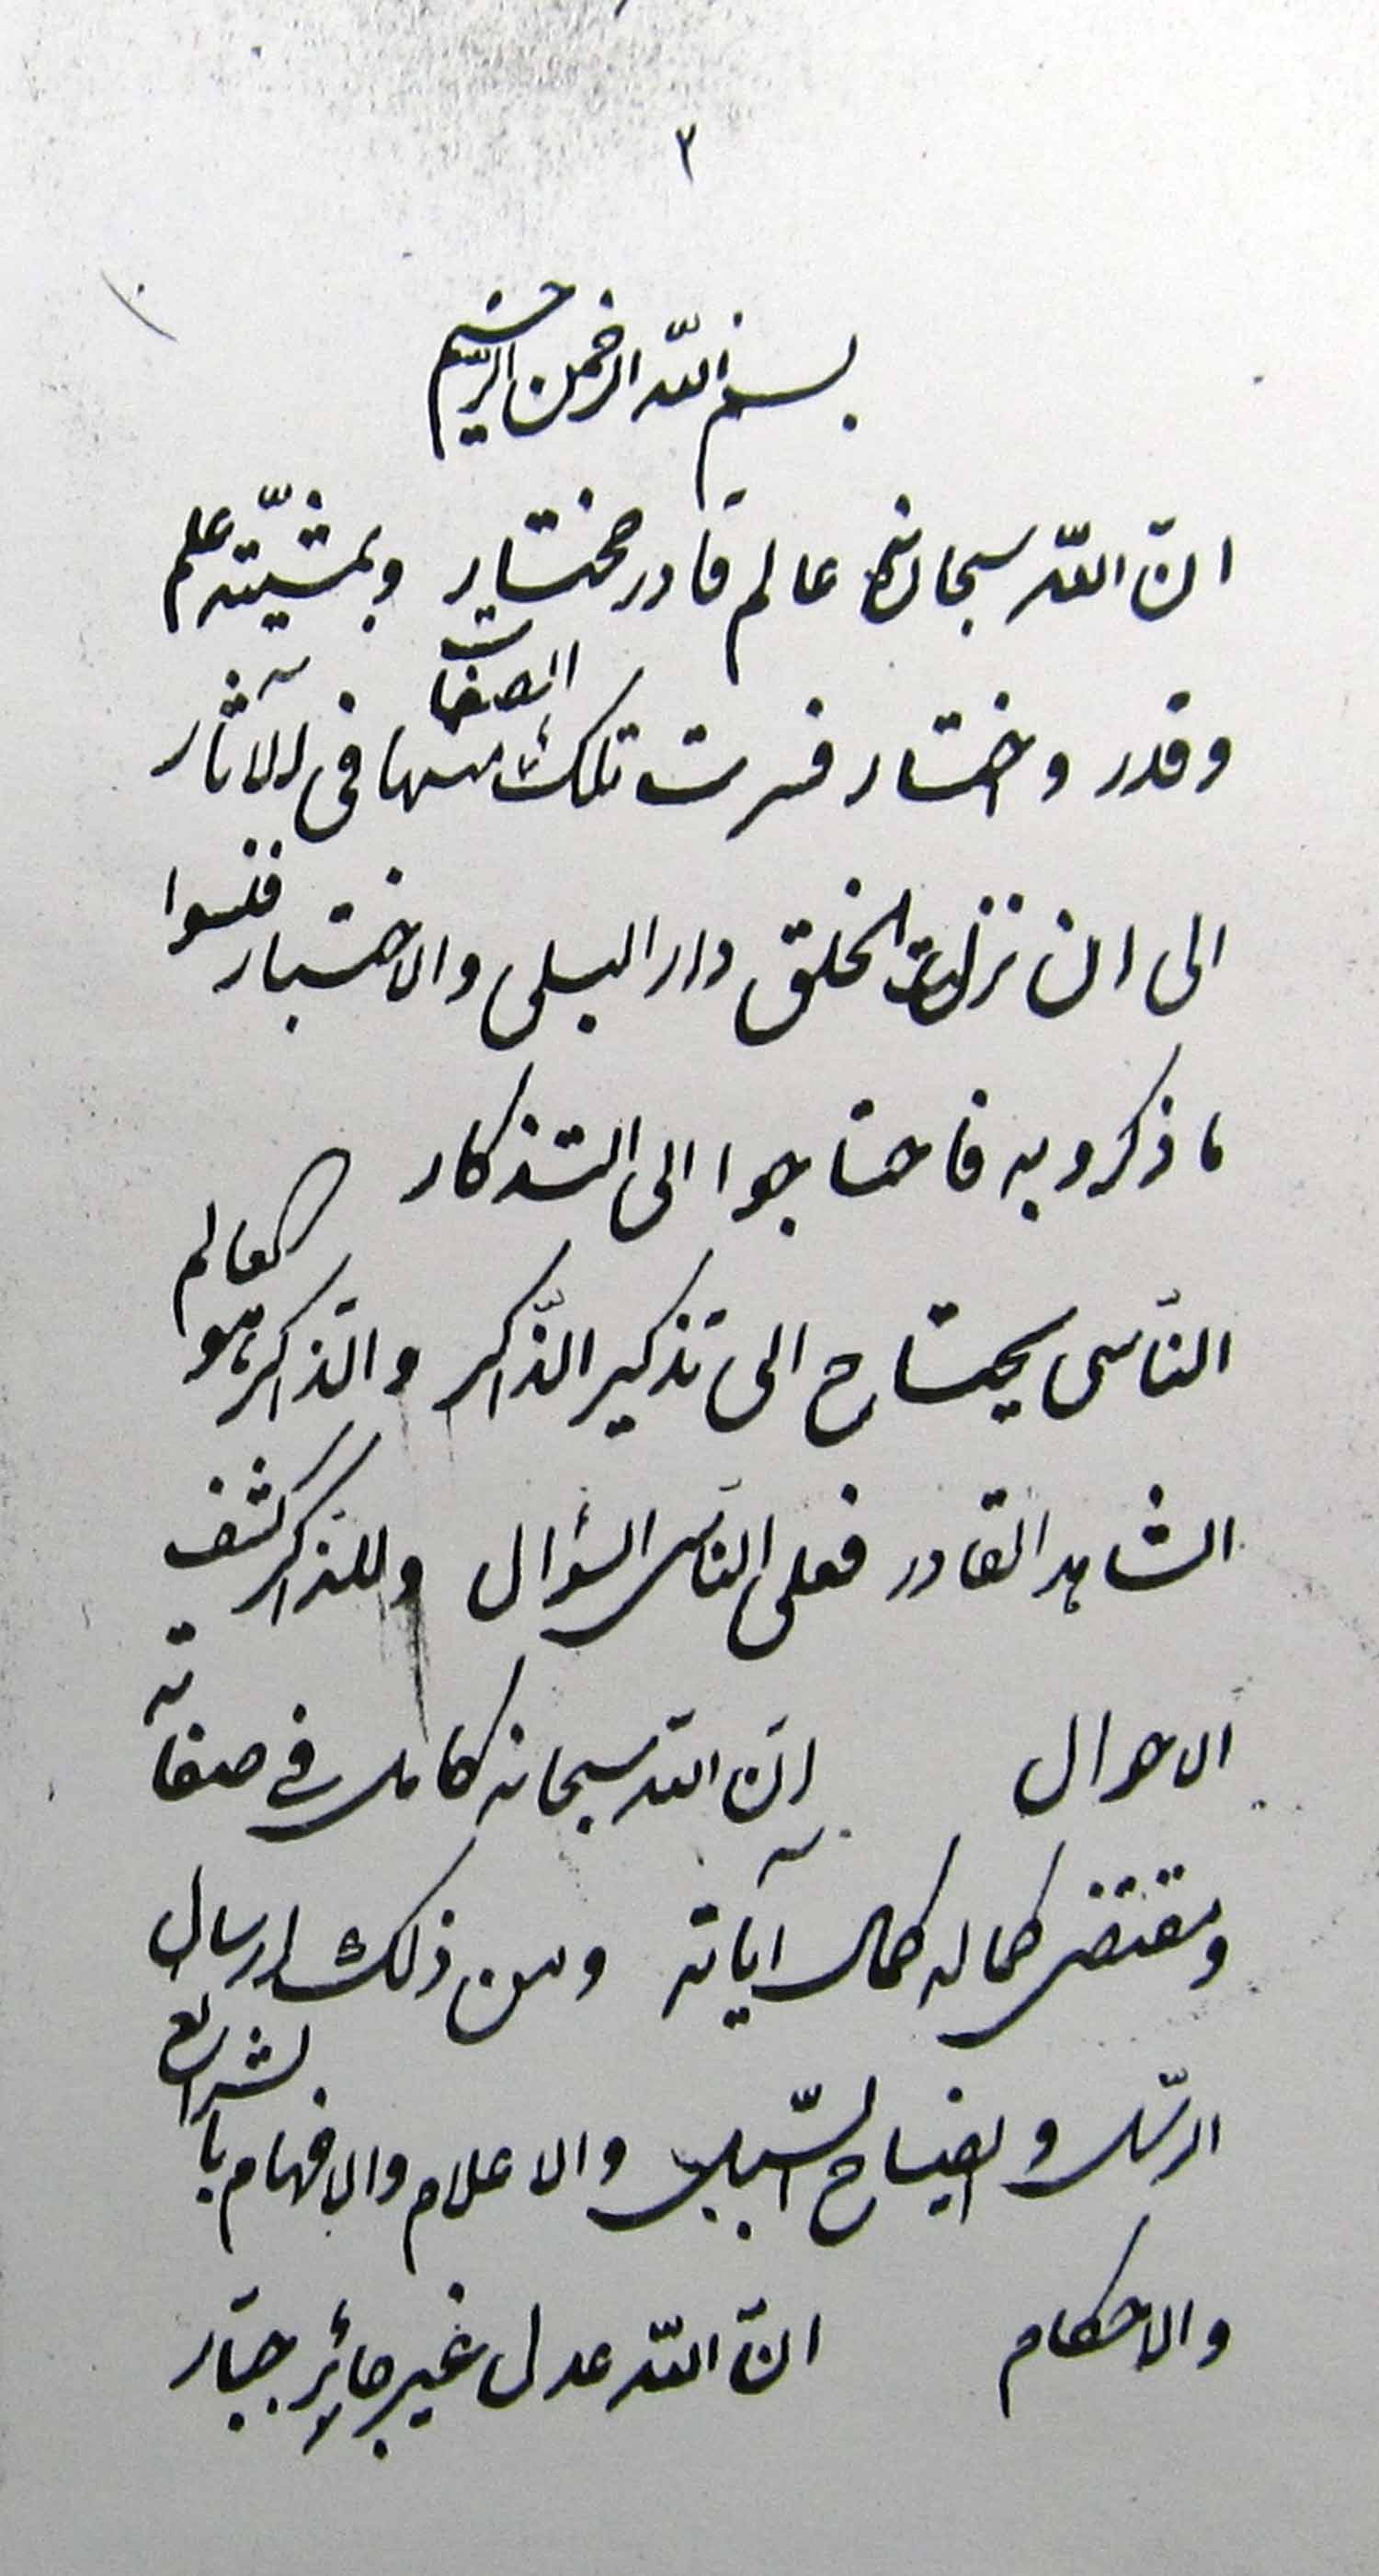 ٣
بسم الله الرحمن الرحیم
انّ اللّه سبحانه عالم قادر مختار وبمشیّته علم
وقدر واختار فسرت تلک الصفات منها فی الآثار
الی ان نزلت الخلق دار البلی والاختبار فنسوا
ما ذکروا به فاحتاجوا الی التذکار
النّاسی یحتاج الی تذکیر الذّاکر والذّاکر هو العالم
الشاهد القادر فعلی الناسی السؤال وللذاکر کشف
الاحوال انّ اللّه سبحانه کامل فی صفاته
ومقتضی کماله کمال آیاته ومن ذلک ارسال
الرسل وایضاح السّبل والاعلام والافهام بالشرایع
والاحکام انّ اللّه عدل غیر جائر جبّار